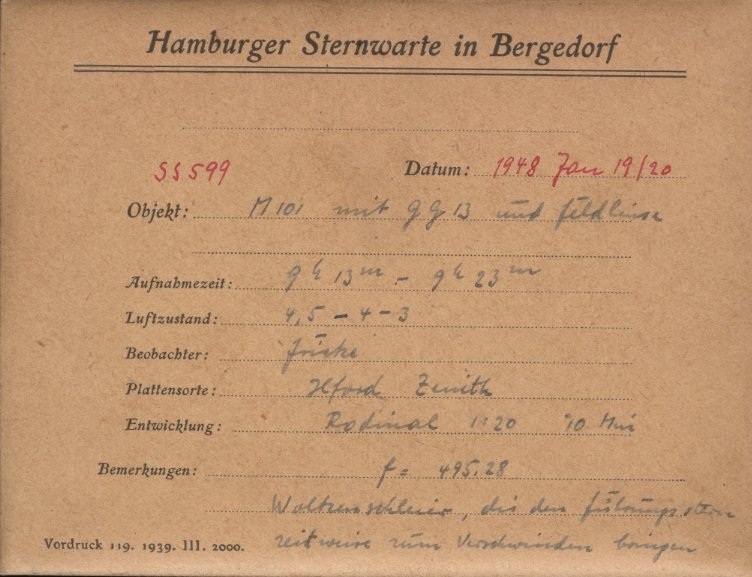 Hamburger Sternwarte in Bergedorf
SS 599
Datum: 1948 Jan 19/20
Objekt: M 101 mit GG 13 und Feldlinse
Aufnahmezeit: 9h 13m - 9h 23m
Luftzustand: 4,5 - 4 - 3
Beobachter: Fricke
Plattensorte: Ilford Zenith
Entwicklung: Rodinal 1:20 10 Min
Bemerkungen: f = 495.28
Wolkenschleier, die den Führungsstern
zeitweise zum Verschwinden bringen
Vordruck 119. 1939. III. 2000.